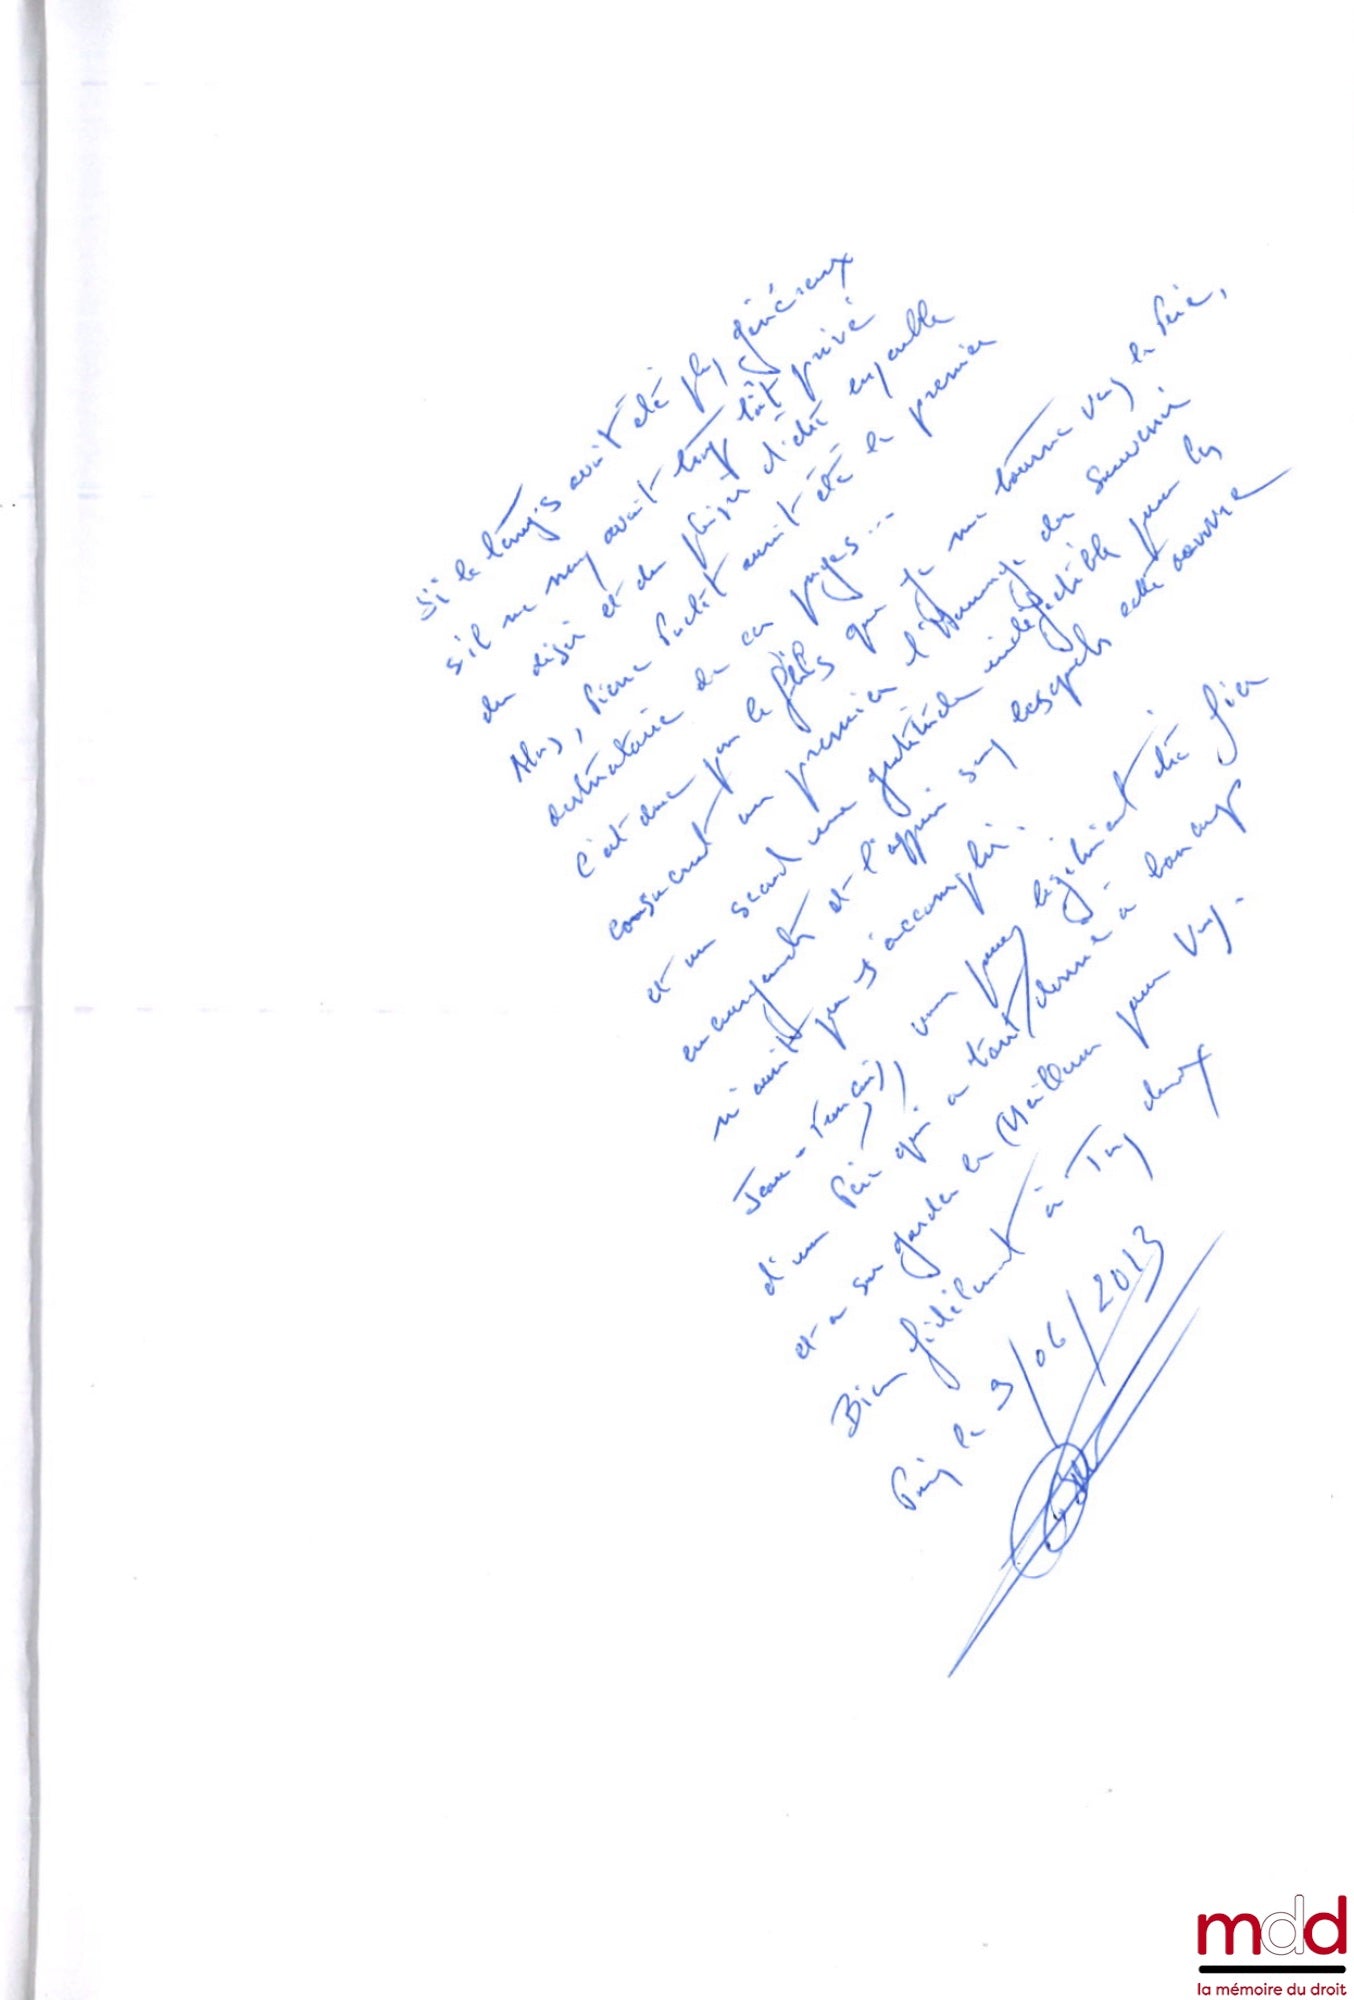 Si le temps avait été plus généreux
s'il ne nous avait trop tôt privé
du désir et du plaisir d'être ensemble
Alas, Pierre aurait été le premier
destinataire de ces pages...
C'est donc par le fils que je me tourne vers le Père,
consacrant au premier l'Hommage du souvenir
et au second une gratitude indéfectible pour les
encouragements et l'appui sans lesquels cette œuvre
n'aurait pu s'accomplir.
Jean-François, vous pouvez légitimement être fier
d'un Père qui a tout donné à
et a su garder le Meilleur pour Vous.
Bien fidèlement à Tous deux
Paris le 9/06/2013
mdd
la mémoire du droit